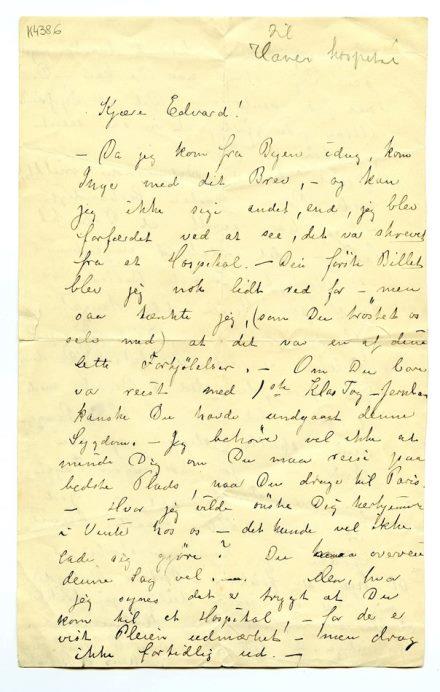 K4386
til
Havre hospital
Kjære Edvard!
– Da jeg kom fra Byen idag, kom
Inge med dit Brev, – og kan
jeg ikke sige andet, end, jeg blev
forfærdet ved at see, det var skrevet
fra et Hospital. – Din første Billet
blev jeg nok lidt ræd for – men
saa tænkte jeg, (som Du trøstet os
selv med) at det var en af dine
lette Forkjølelser. – Om Du bare
var reist med 1ste Klas Tog – Jernban
kanske Du havde undgaaet denne
Sygdom. – Jeg behøver vel ikke at
minde Dig om Du maa reise paa
bedste Plads, naar Du drage til Paris.
– Hvor jeg vilde ønske Dig herhjemme
i Vinter hos os – det kunde vel ikke
lade sig gjøre? Du overveie
denne Sag vel. –. Men, hvor
jeg synes det er trygt at Du
kom til et Hospital, – for der er
vist Pleien udmærket – men drag
ikke fortidlig ud. –